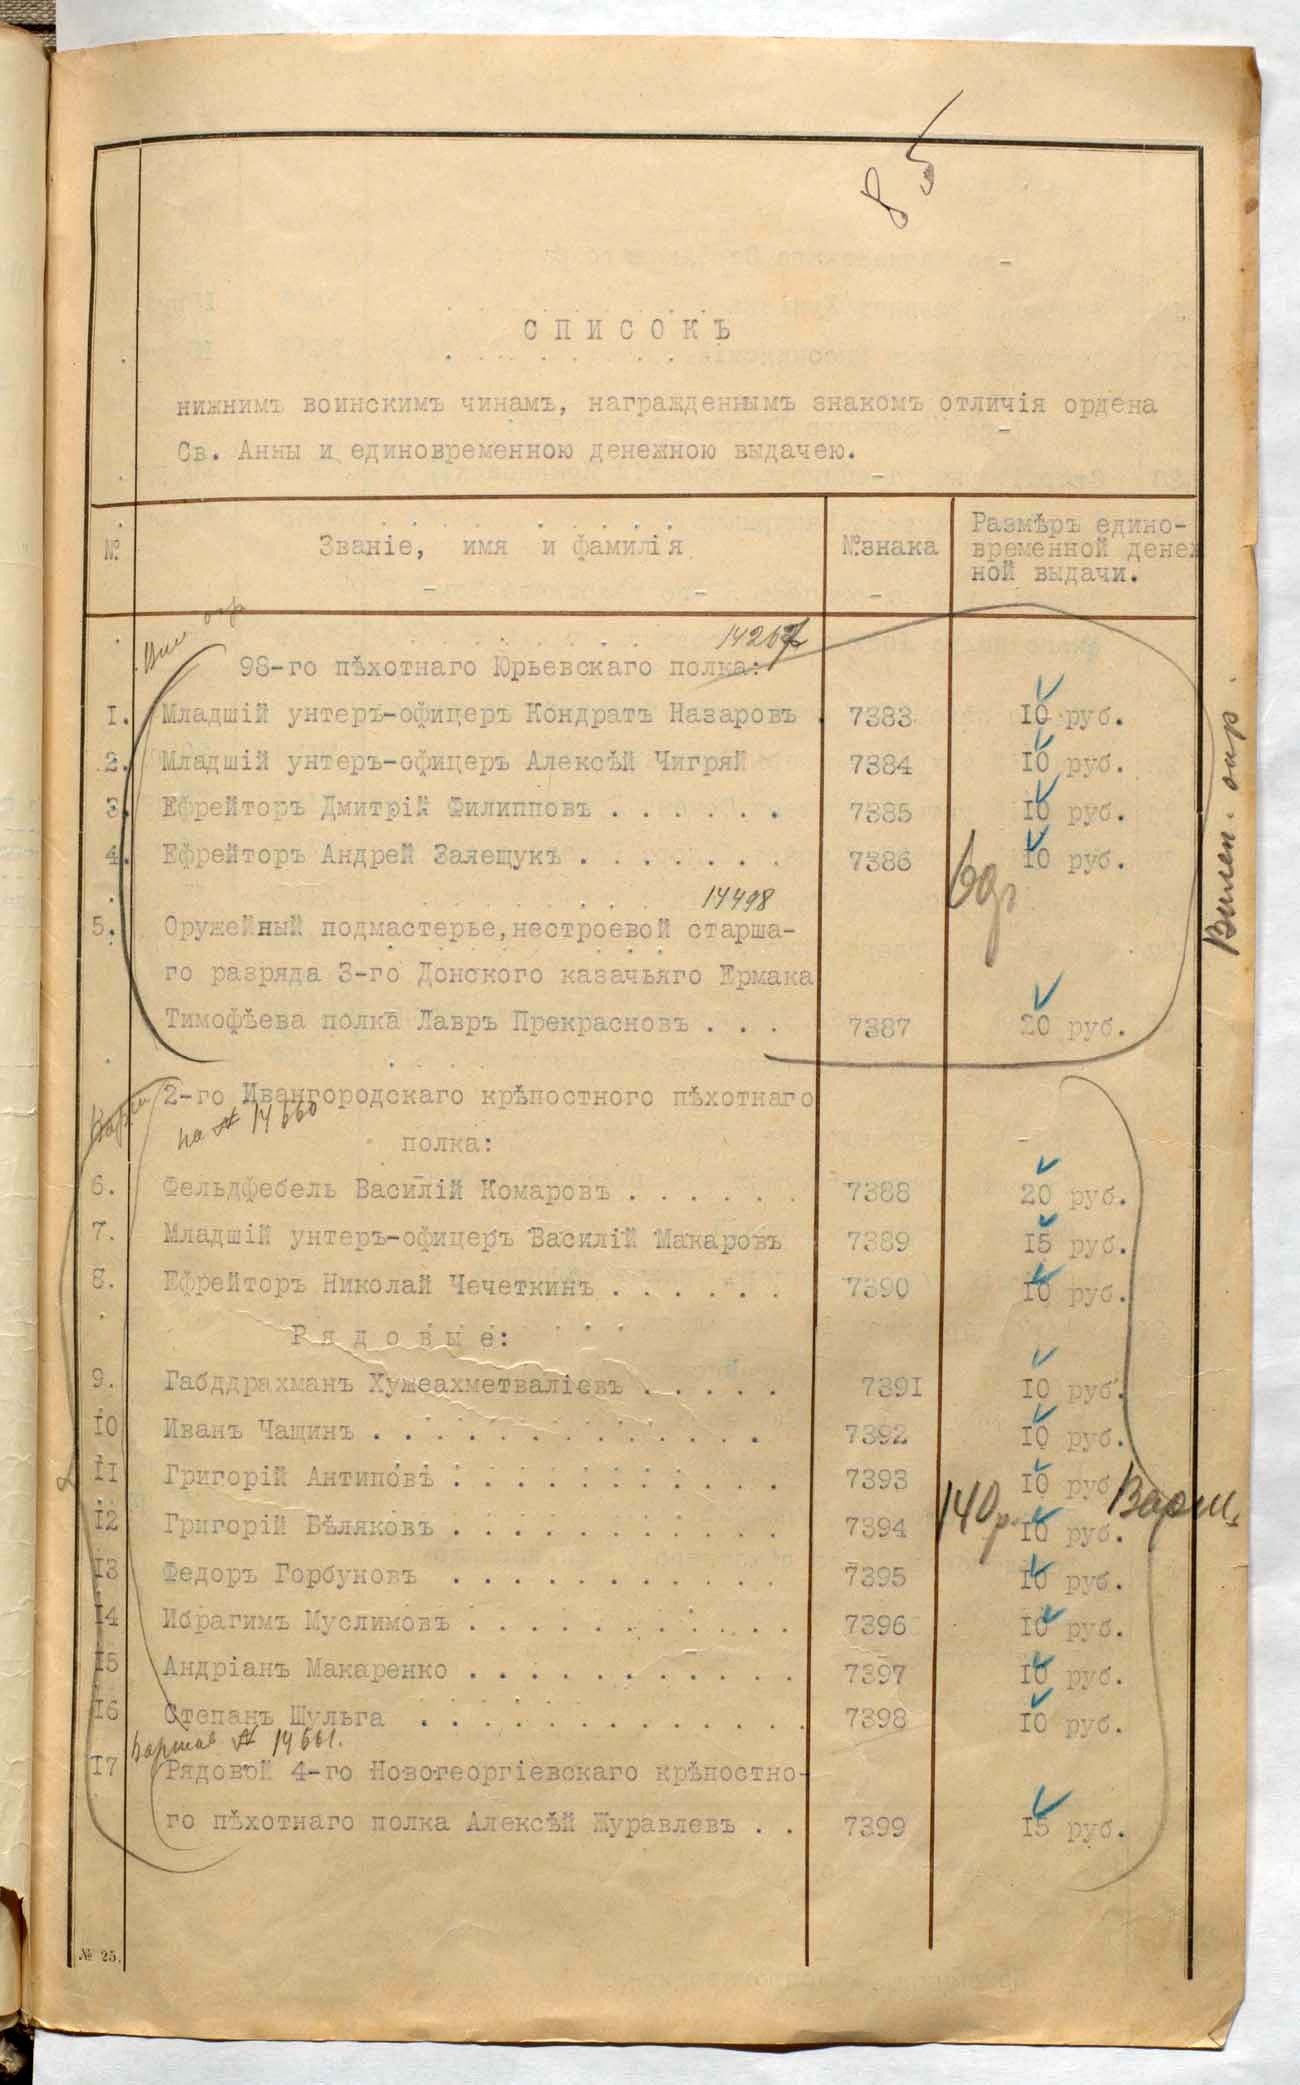 85
СПИСОКЪ
нижнимъ воинскимъ чинамъ, награжденнымъ знакомъ отличія ордена
Св. Анны и единовременною денежною выдачею.
№ Званіе, имя и фамилія №знака Размѣръ едино-
временной денеж
ной выдачи.
14267
98-го пѣхотнаго Юрьевскаго полка:
I. Младшій унтеръ-офицеръ Кондратъ Назаровъ . 7383 IO руб.
2. Младшій унтеръ-офицеръ Алексѣй Чигряй 7384 IO руб.
3. Ефрейторъ Дмитрій Филипповъ . . . . . . 7385 IO руб.
4. Ефрейторъ Андрей Залещукъ . . . . . . . 7386 IO руб.
Вилен. окр.
14498
5. Оружейный подмастерье,нестроевой старша-
го разряда 3-го Донского казачьяго Ермака
Тимофѣева полка Лавръ Прекрасновъ . . . 7387 20 руб.
2-го Ивангородскаго крѣпостного пѣхотнаго
на № 14660
полка:
6. Фельдфебель Василій Комаровъ . . . . . . 7388 20 руб.
7. Младшій унтеръ-офицеръ Василій Макаровъ 7389 I5 руб.
8. Ефрейторъ Николай Чечеткинъ . . . . . . 7390 IO руб.
Рядовые:
9. Габддрахманъ Хужеахметваліевъ . . . . . 739I IO руб.
IO Иванъ Чащинъ . . . . . . . . . . . . . 7392 IO руб.
II Григорій Антиповъ . . . . . . . . . . . 7393 IO руб.
140р. Варш.
I2 Григорій Бѣляковъ . . . . . . . . . . . 7394 IO руб.
I3 Федоръ Горбуновъ . . . . . . . . . . . 7395 IO руб.
I4 Ибрагимъ Муслимовъ . . . . . . . . . . . 7396 IO руб.
I5 Андріанъ Макаренко . . . . . . . . . . . 7397 IO руб.
I6 Степанъ Шульга . . . . . . . . . . . . . 7398 IO руб.
№ 14661.
I7 Рядовой 4-го Новогеоргіевскаго крѣпостно-
го пѣхотнаго полка Алексѣй Журавлевъ . . 7399 I5 руб.
№ 25.